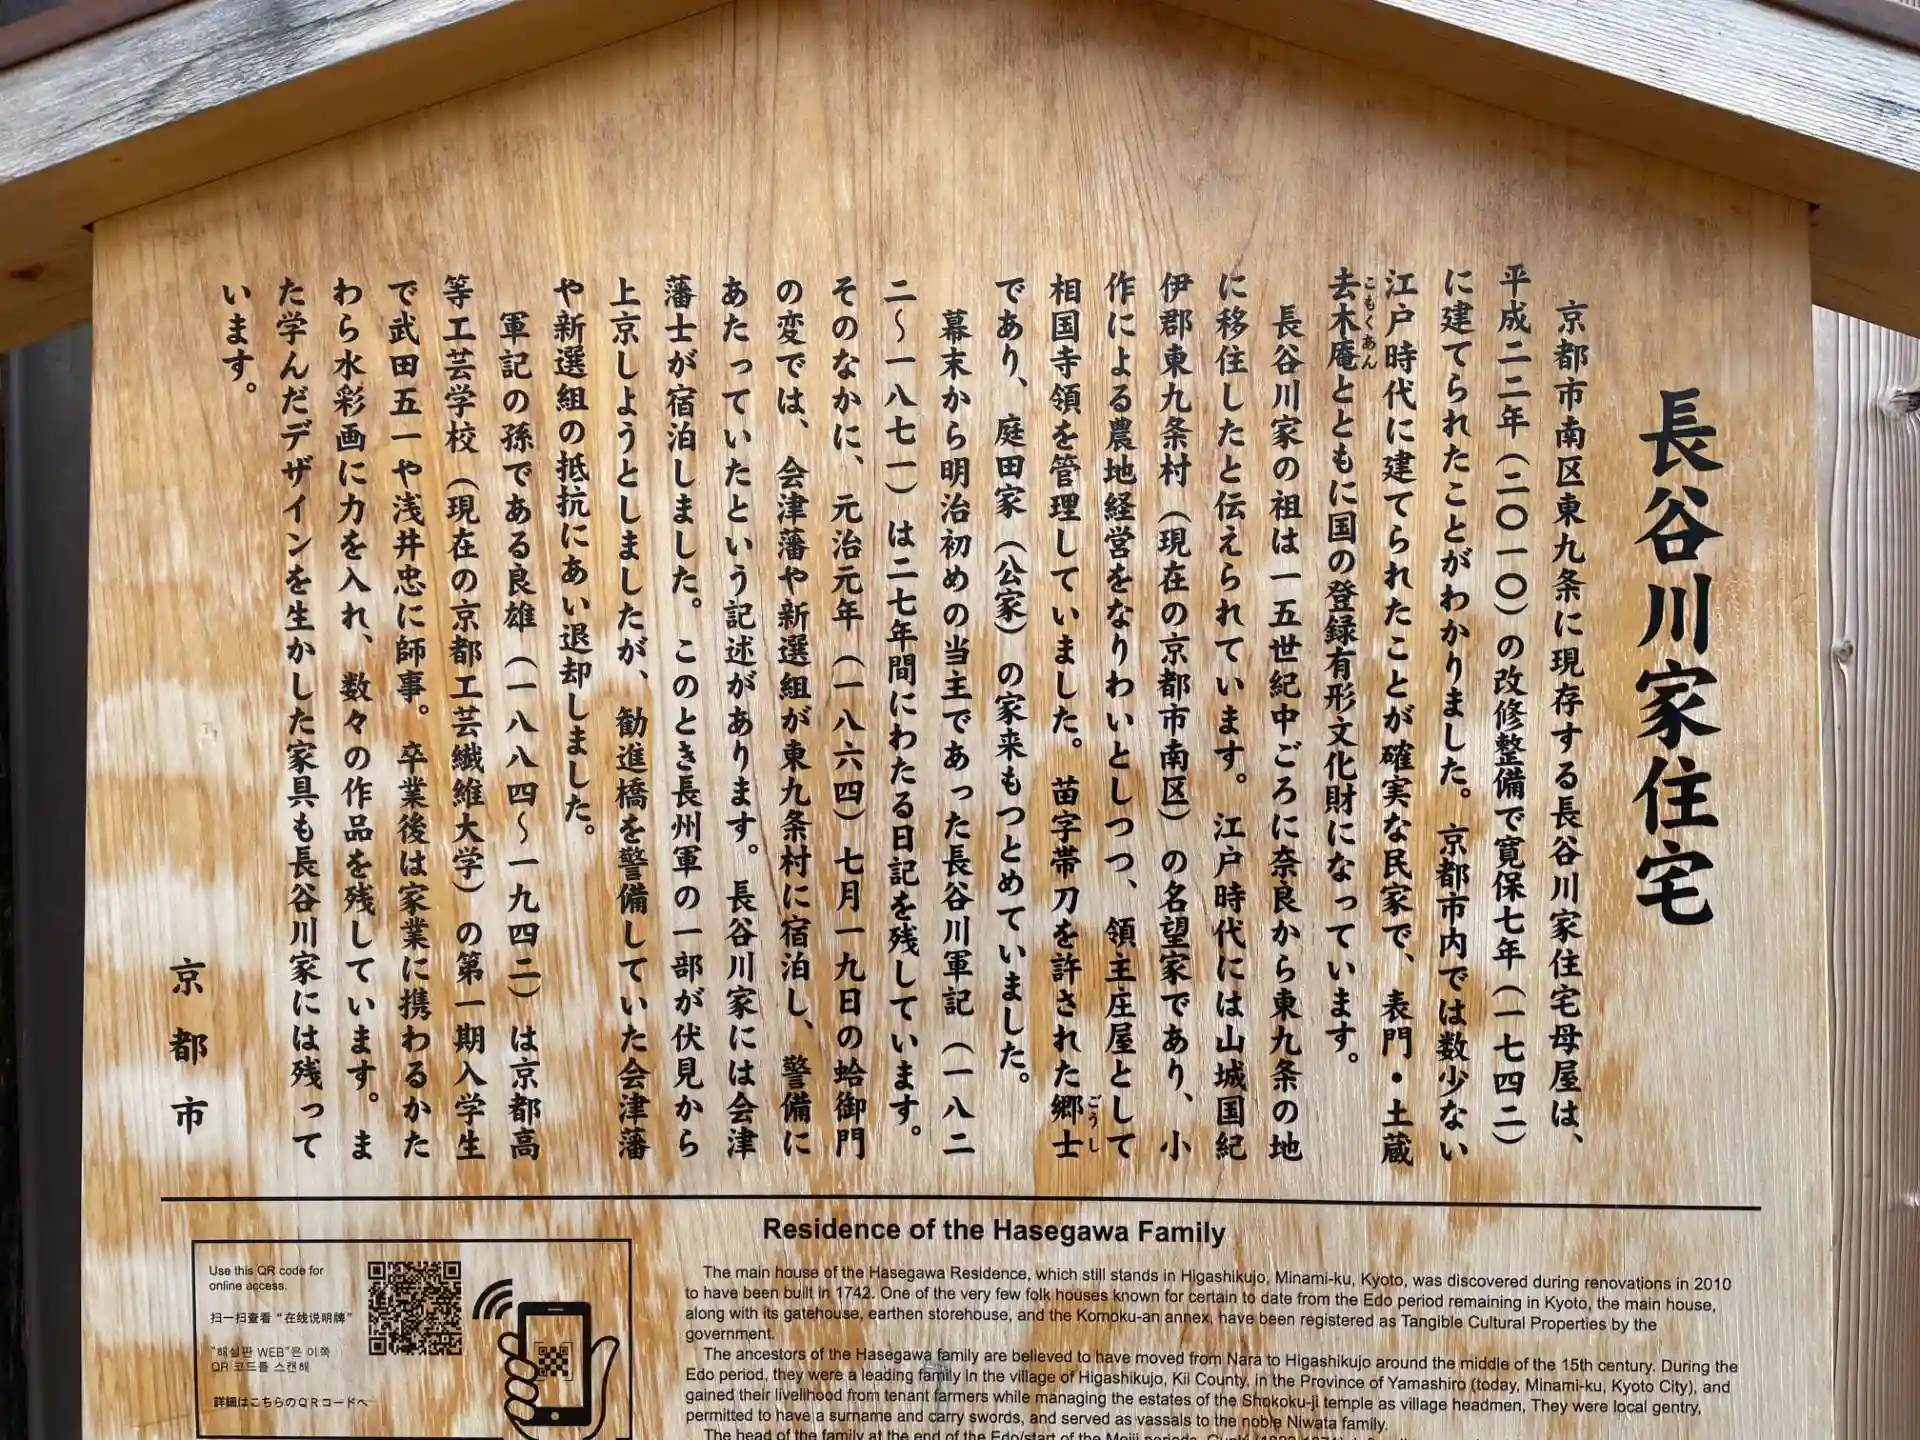 長谷川家住宅
京都市南区東九条に現存する長谷川家住宅母屋は、
平成二二年（二〇一〇）の改修整備で寛保七年（一七四二）
に建てられたことがわかりました。京都市内では数少ない
江戸時代に建てられたことが確実な民家で、表門・土蔵
去木庵とともに国の登録有形文化財になっています。
こもくあん
長谷川家の祖は一五世紀中ごろに奈良から東九条の地
に移住したと伝えられています。江戸時代には山城国紀
伊郡東九条村（現在の京都市南区）の名望家であり、小
作による農地経営をなりわいとしつつ、領主庄屋として
相国寺領を管理していました。苗字帯刀を許された郷士
ごうし
であり、庭田家（公家）の家来もつとめていました。
幕末から明治初めの当主であった長谷川軍記（一八二
二〜一八七一）は二七年間にわたる日記を残しています。
そのなかに、元治元年（一八六四）七月一九日の蛤御門
の変では、会津藩や新選組が東九条村に宿泊し、警備に
あたっていたという記述があります。長谷川家には会津
藩士が宿泊しました。このとき長州軍の一部が伏見から
上京しようとしましたが、勧進橋を警備していた会津藩
や新選組の抵抗にあい退却しました。
軍記の孫である良雄（一八八四〜一九四二）は京都高
等工芸学校（現在の京都工芸繊維大学）の第一期入学生
で武田五一や浅井忠に師事。卒業後は家業に携わるかた
わら水彩画に力を入れ、数々の作品を残しています。ま
た学んだデザインを生かした家具も長谷川家には残って
います。
京都市
Residence of the Hasegawa Family
The main house of the Hasegawa Residence, which still stands in Higashikujo, Minami-ku, Kyoto, was discovered during renovations in 2010
to have been built in 1742. One of the very few folk houses known for certain to date from the Edo period remaining in Kyoto, the main house,
along with its gatehouse, earthen storehouse, and the Komoku-an annex, have been registered as Tangible Cultural Properties by the
government.
The ancestors of the Hasegawa family are believed to have moved from Nara to Higashikujo around the middle of the 15th century. During the
Edo period, they were a leading family in the village of Higashikujo, Kii County, in the Province of Yamashiro (today, Minami-ku, Kyoto City), and
gained their livelihood from tenant farmers while managing the estates of the Shokoku-ji temple as village headmen, They were local gentry,
permitted to have a surname and carry swords, and served as vassals to the noble Niwata family.
The head of the family at the end of the Edo/start of the Meiji periods,
Use this QR code for
online access.
扫一扫查看“在线说明牌”
"해설판 WEB"은 이쪽
QR 코드를 스캔해
詳細はこちらのQRコードへ